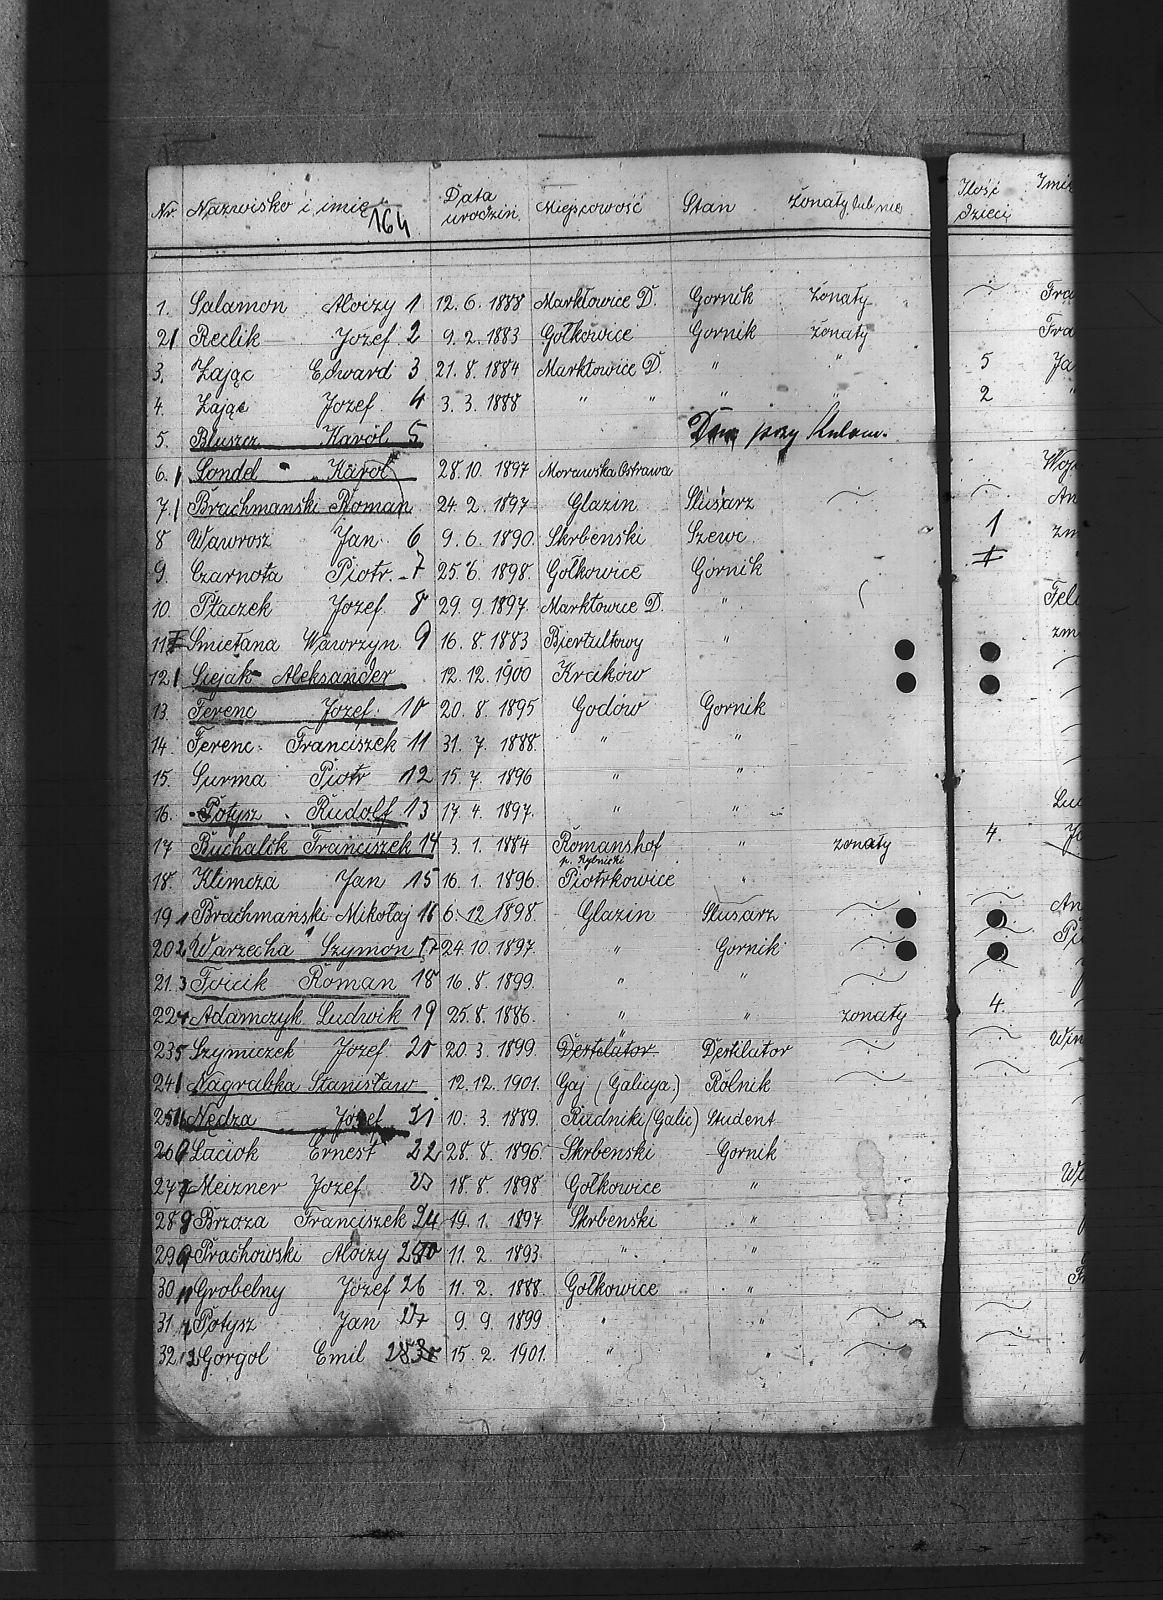 Nr. Nazwisko i imię Data urodzin. Miejscowość Stan Żonaty lub nie Ilość dzieci
164
1. Salamon Aloizy 1 12. 6. 1888 Markłowice D. Gornik żonaty
2. Reclik Jozef 2 9. 2. 1883 Gołkowice Gornik żonaty Fra
3. Zając Edward 3 21. 8. 1884 Markłowice D. " " 5 Ja
4. Zając Jozef 4 3. 3. 1888 " " " " 2 "
5. Bluszcz Karól 5 przy
6. Londel Karol 28. 10. 1897 Morawska Ostrawa
7. Brachmański Roman 24. 2. 1897 Glazin Slusarz An
8 Wawrosz Jan 6 9. 6. 1890. Skrbenski Szewc. 1 zm
9. Czarnota Piotr. 7 25. 6. 1898. Gołkowice Gornik
10. Ptaczek Jozef 8 29. 9. 1897. Markłowice D. " Feli
11. Smietana Wawrzyn 9 16. 8. 1883 Biertultowy " zm
12. Siejak Aleksander 12. 12. 1900 Kraków
13. Ferenc Jozef. 10 20. 8. 1895 Godów Gornik
14. Ferenc. Franciszek 11 31. 7. 1888. " "
15. Surma Piotr 12 15. 7. 1896 " "
16. Potysz Rudolf 13 17. 4. 1897. " "
17 Buchalik Franciszek 14 3. 1. 1884 Romanshof " żonaty 4.
p. Rybnicki
18. Klimcza Jan 15 16. 1. 1896. Piotrkowice "
19 1 Brachmański Mikołaj 16 6. 12 1898. Glazin Slusarz An
20 2 Warzecha Szymon 17 24. 10. 1897. " Gornik
21. 3 Foicik Roman 18 16. 8. 1899. " "
22 4 Adamczyk Ludwik 19 25. 8. 1886. " " żonaty 4.
23 5 Szymiczek Jozef 20 20. 3. 1899. Destilator Destilator
24 Nagrabka Stanisław 12. 12. 1901. Gaj (Galicya.) Rolnik
25 Nędza Józef 21 10. 3. 1889. Rudniki (Galic) Student
26 Laciok Ernest 22 28. 8. 1896. Skrbenski Gornik
27 7 Meizner Jozef 18. 8. 1898 Gołkowice "
28 Brzoza Franciszek 24 19. 1. 1897 Skrbenski "
29 Prachowski Aloizy 11. 2. 1893. " "
30 Grobelny Józef 26 11. 2. 1888. Gołkowice "
31 Potysz Jan 27 9. 9. 1899 " "
32 Gorgol Emil 28 15. 2. 1901. " "